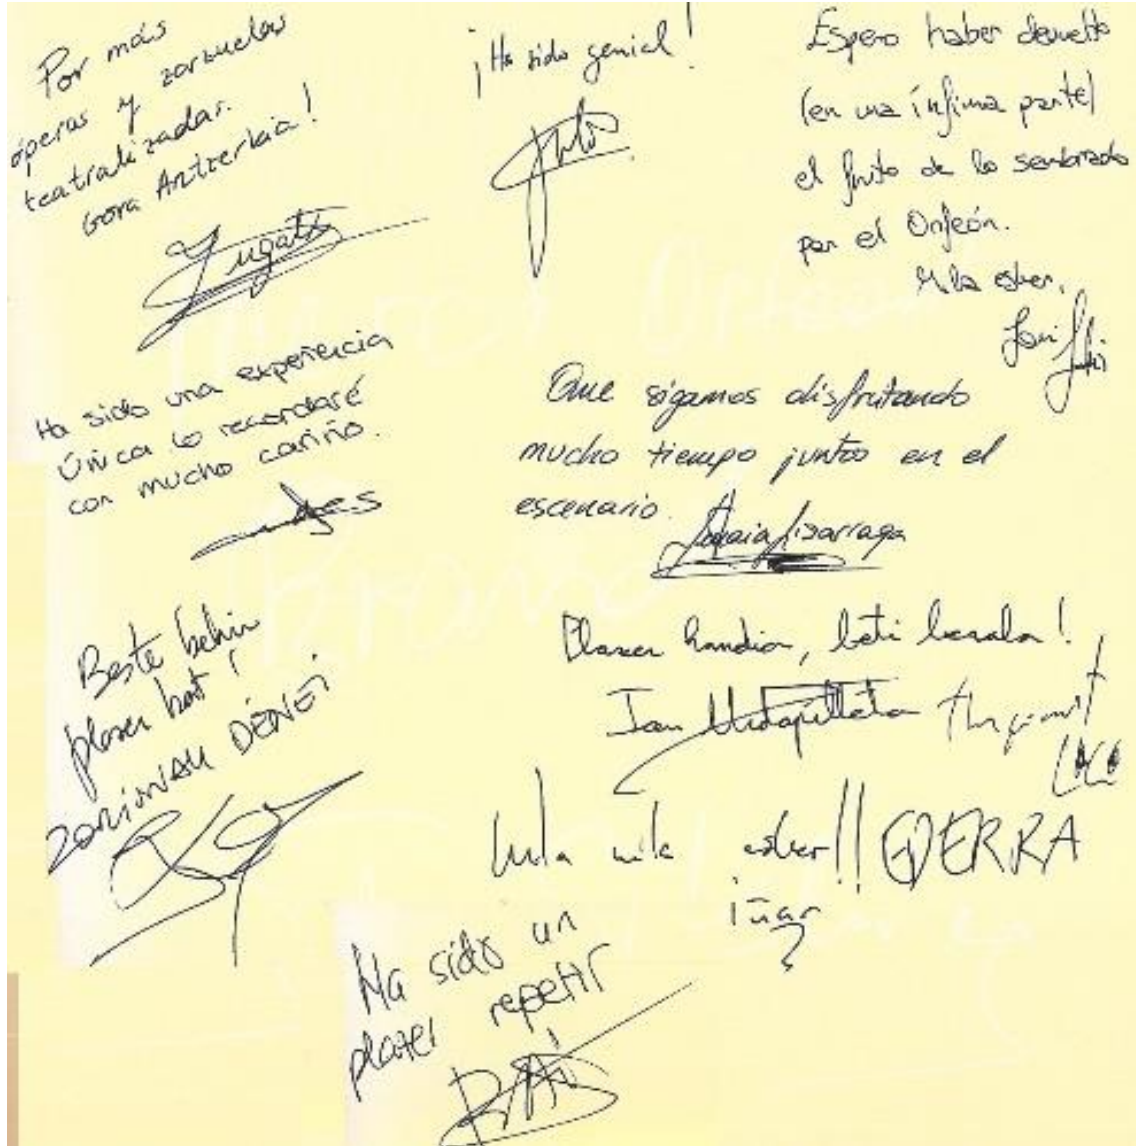 Por más
óperas y zarzuelas
teatralizadas.
Gora Antzerkia!
¡Ha sido genial!
Espero haber devuelto
(en una ínfima parte)
el fruto de lo sembrado
por el Orfeón.
Mila esker,
Ha sido una experiencia
única lo recordaré
con mucho cariño.
Que sigamos disfrutando
mucho tiempo juntos en el
escenario.
Amaia Lizarraga
Beste behin
plazer bat!
ZORIONAK DENEI
Plazer handia, beti bezala!
Mila mila esker!! EDERRA
izan
Ha sido un
placer repetir